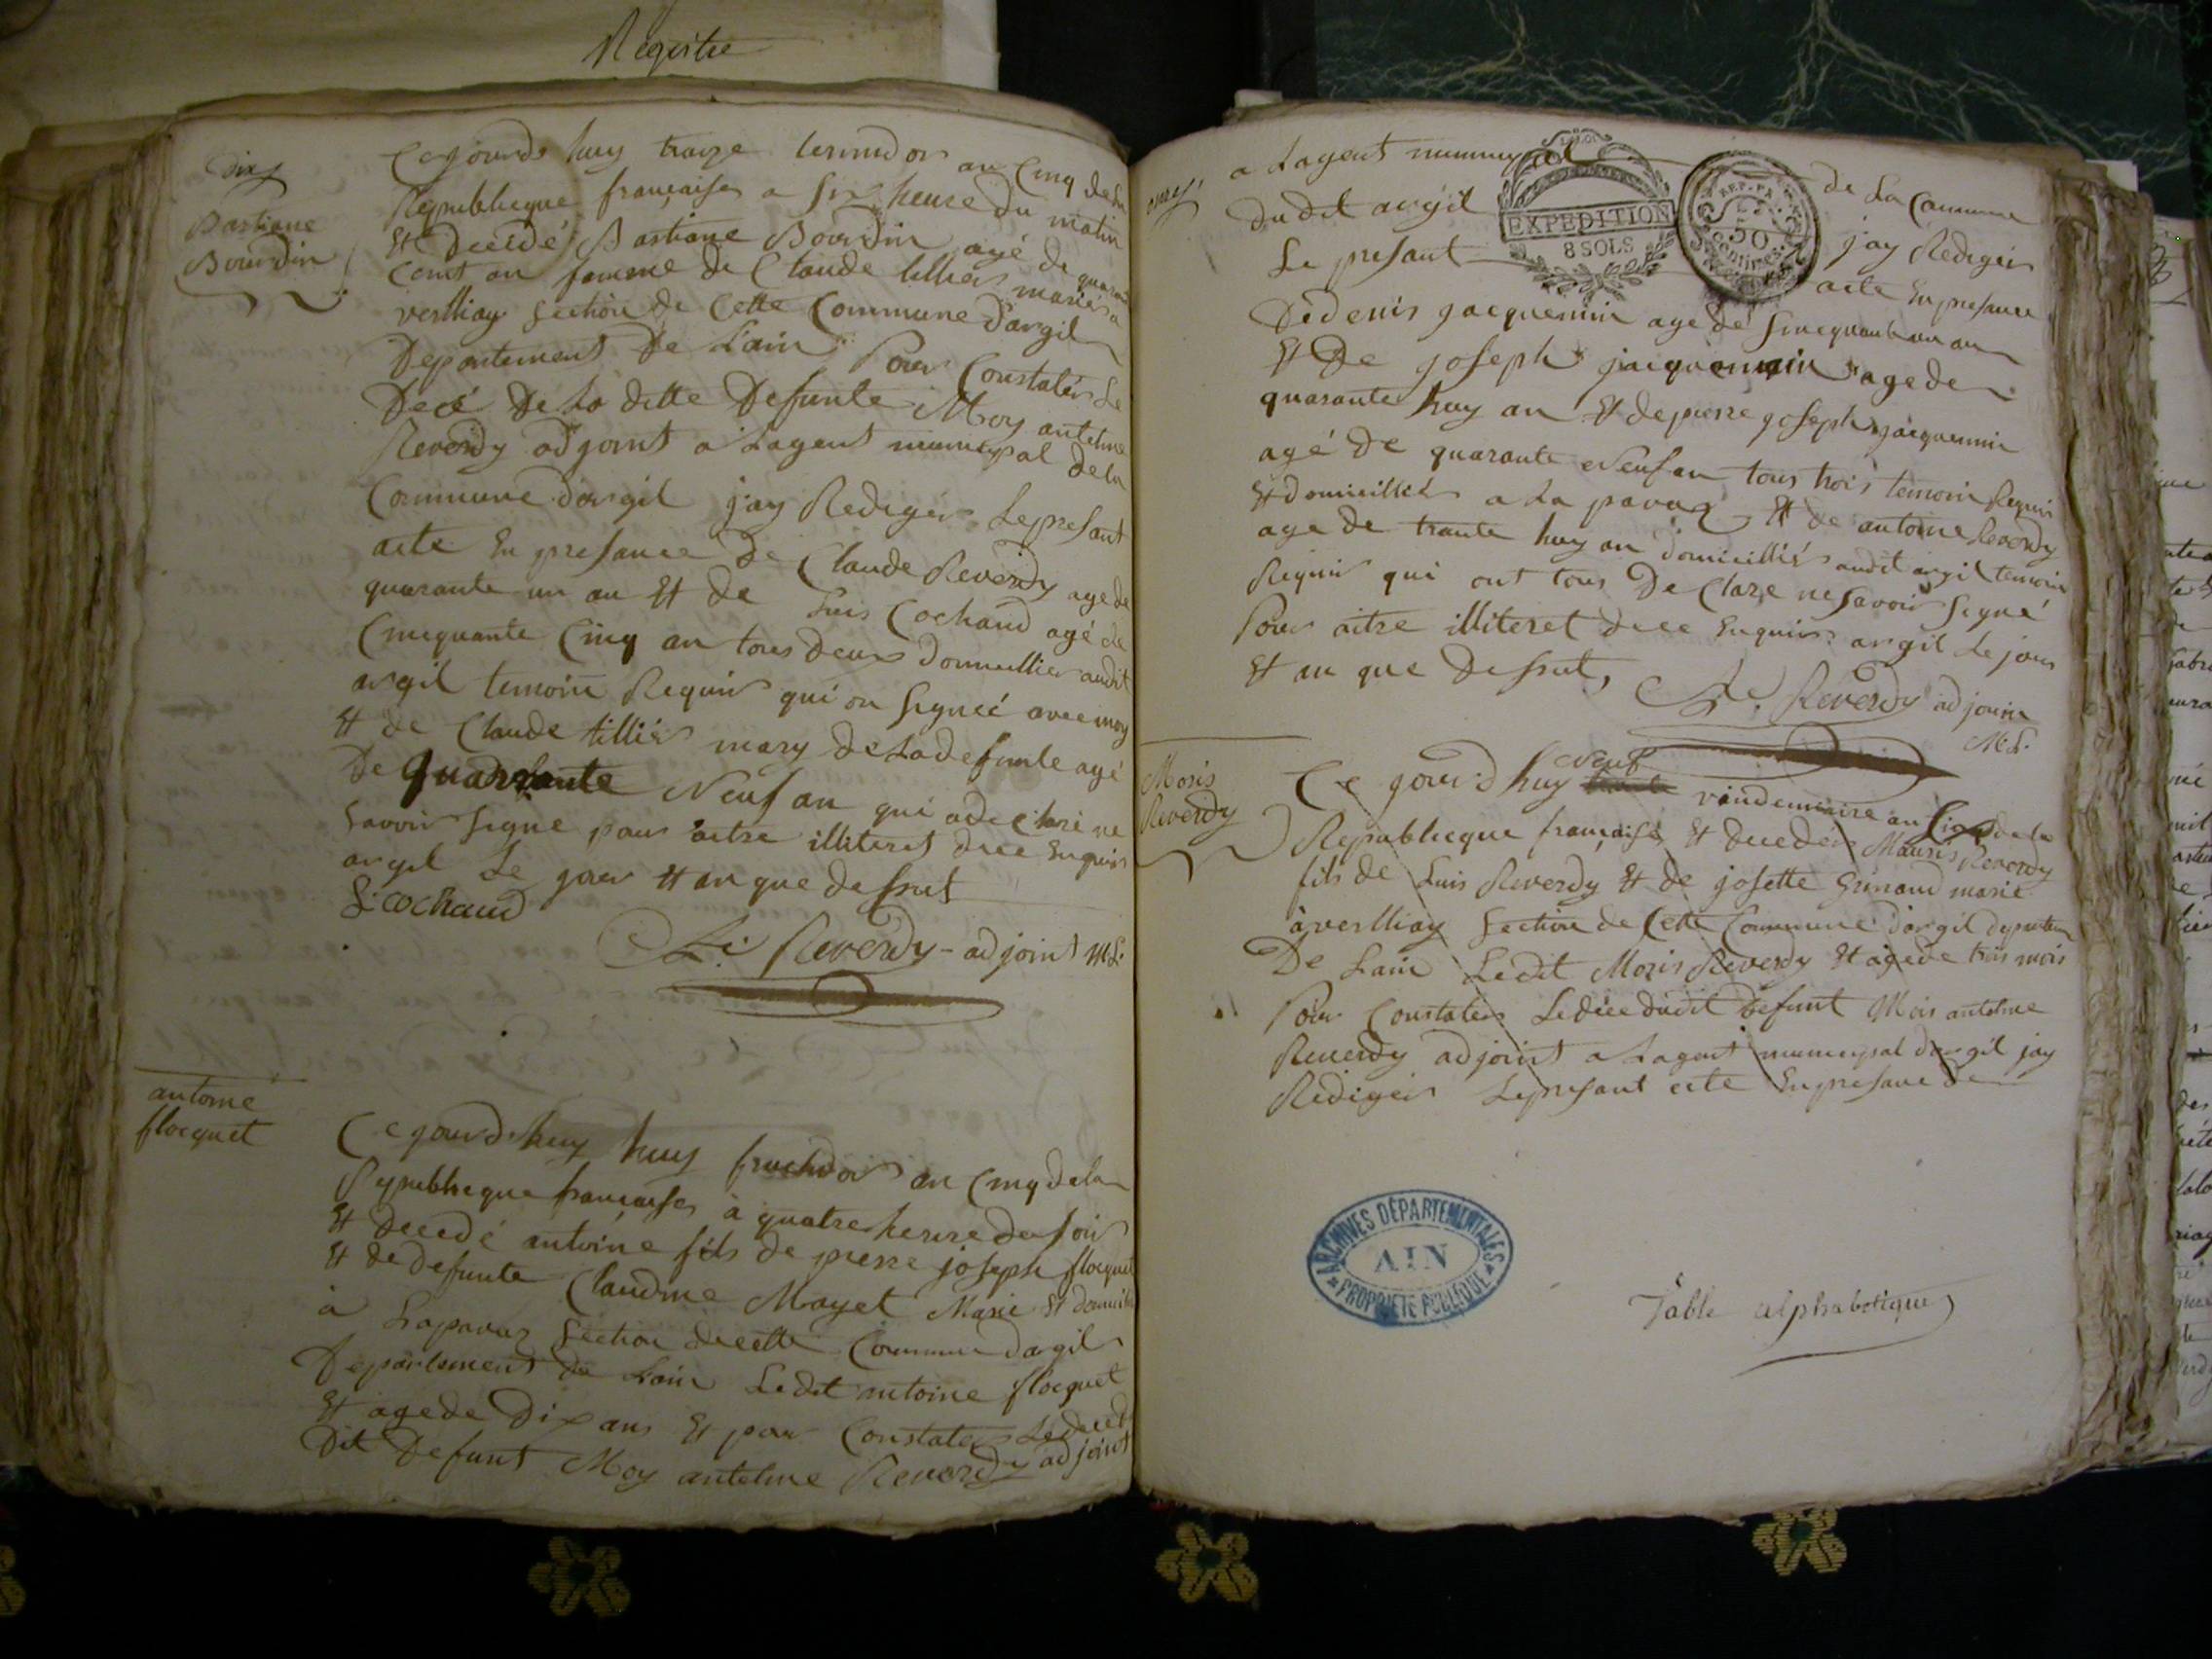 Registre
Dix
Bastiane
Bourdin
Ce gourde huy traize termidor an Cinq de la
Republieque française a six heure du matin
Et decedé Bastiane Bourdin agé de quarante
femme de Claude tillier mariés a
verlliay section de Cette Commune d'argil
Departement De Lain Pour Constater Le
Décé De La ditte Defunte Moy antelme
Reverdy adjoint a Lagent municipal de la
Commune d'argil jay Rediger Le presant
acte En presance De Claude Reverdy age de
quarante un an Et de Luis Cochaud agé de
Cinquante Cinq an tous deux domicillier audit
argil temoin Requis qui on signeé avec moy
Et de Claude tillier mary de La defunte agé
De quarante Neuf an qui a declaré ne
savoir signé pour aitre illiteret de ce Enquis
argil Le jour Et an que dessut
L. cochaud
Reverdy - adjoint
antoine
flocquet
Ce gourd'huy huy fructidor an Cinq de la
Republieque française à quatre heure du soir
Et decedé antoine fils de pierre joseph flocquet
Et de defunte Claudine Mayet Marié Et domicilié
à Lapavaz section de cette Commune dargil
Departement de Lain Ledit antoine flocquet
Et age de Dix ans Et pour Constater Le decé
Dit Defunt Moy antelme Reverdy adjoint
onze
a Lagent municipal de La Commune
dudit argil
EXPEDITION
8 SOLS
REP. FRA
50
Centimes
Le presant jay Rediger
acte En presance
De denis jacquemin age de sincquante un an
Et De joseph jacquemin age de
quarante huy an Et de pierre joseph jacquemin
agé de quarante Neuf an tous trois temoin Requis
Et domicillié a La pavaz Et de antoine Reverdy
age de trante huy an domicillié audit argil temoin
Requis qui ont tous De Clare ne savoir signé
Pour aitre illiteret de ce Enquis argil Le jour
Et an que Dessut,
Reverdy adjoint
Moris
Reverdy
Ce gour'd huy Neuf vandemiaire an Cinq de la
Republieque française Et decedér Mauris Reverdy
fils de Luis Reverdy Et de josette Grinand marié
à verlliay section de Cette Commune d'argil departem
De Lain Ledit Moris Reverdy Et age de trois mois
Pour Constater Le decé dudit Defunt Mois antelme
Reverdy adjoint a Lagent municipal dargil jay
Rediger Le presant acte En presance de
ARCHIVES DÉPARTEMENTALES
AIN
PROPRIÉTÉ PUBLIQUE
Table alphabetique